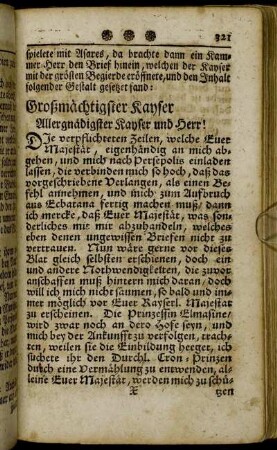 321
spielete mit Asares, da brachte dann ein Kam-
mer Herr den Brief hinein, welchen der Kayser
mit der grösten Begierde eröffnete, und den Inhalt
folgender Gestalt gesetzet fand:
Großmächtigster Kayser
Allergnädigster Kayser und Herr!
Die verpflichteten Zeilen, welche Euer
Majestät, eigenhändig an mich ab-
gehen, und mich nach Persepolis einladen
lassen, die verbinden mich so hoch, daß das
vorgeschriebene Verlangen, als einen Be-
fehl annehmen, und mich zum Aufbruch
aus Ecbatana fertig machen muß/ dann
ich mercke, daß Euer Majestät, was son-
derliches mit mir abzuhandeln, welches
eben denen ungewissen Briefen nicht zu
vertrauen. Nun wäre gerne vor dieses
Blat gleich selbsten erschienen, doch ein
und andere Nothwendigkelten, die zuvor
anschaffen muß hintern mich daran/ doch
will ich mich nicht säumen, so bald und im-
mer möglich vor Euer Kayserl. Majestät
zu erscheinen. Die Prinzessin Elmasine/
wird zwar noch an dero Hofe seyn, und
mich bey der Ankunfft zu verfolgen, trach-
ten, weilen sie die Einbildung heeget, ich
suchete ihr den Durchl. Cron-Prinzen
durch eine Vermählung zu entwenden, al-
leine Euer Majestät, werden mich zu schü-
X tzen